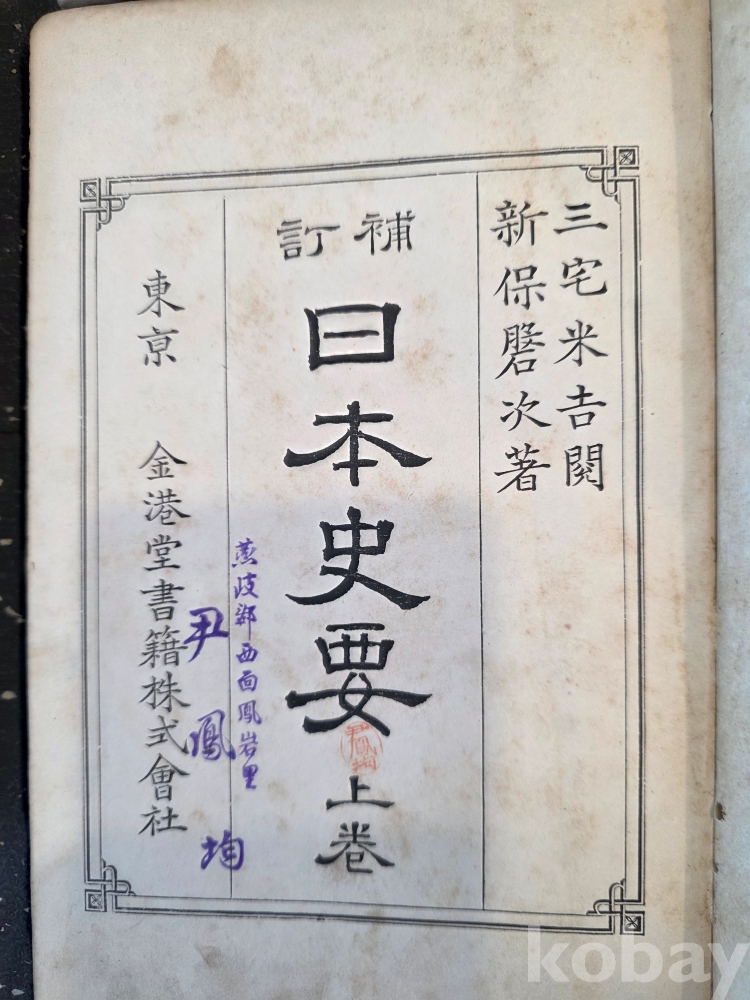 三宅米吉閱
新保磐次著
補訂
日本史要 上卷
燕岐郡西面鳳岩里
尹鳳均
東亰 金港堂書籍株式會社
kobay